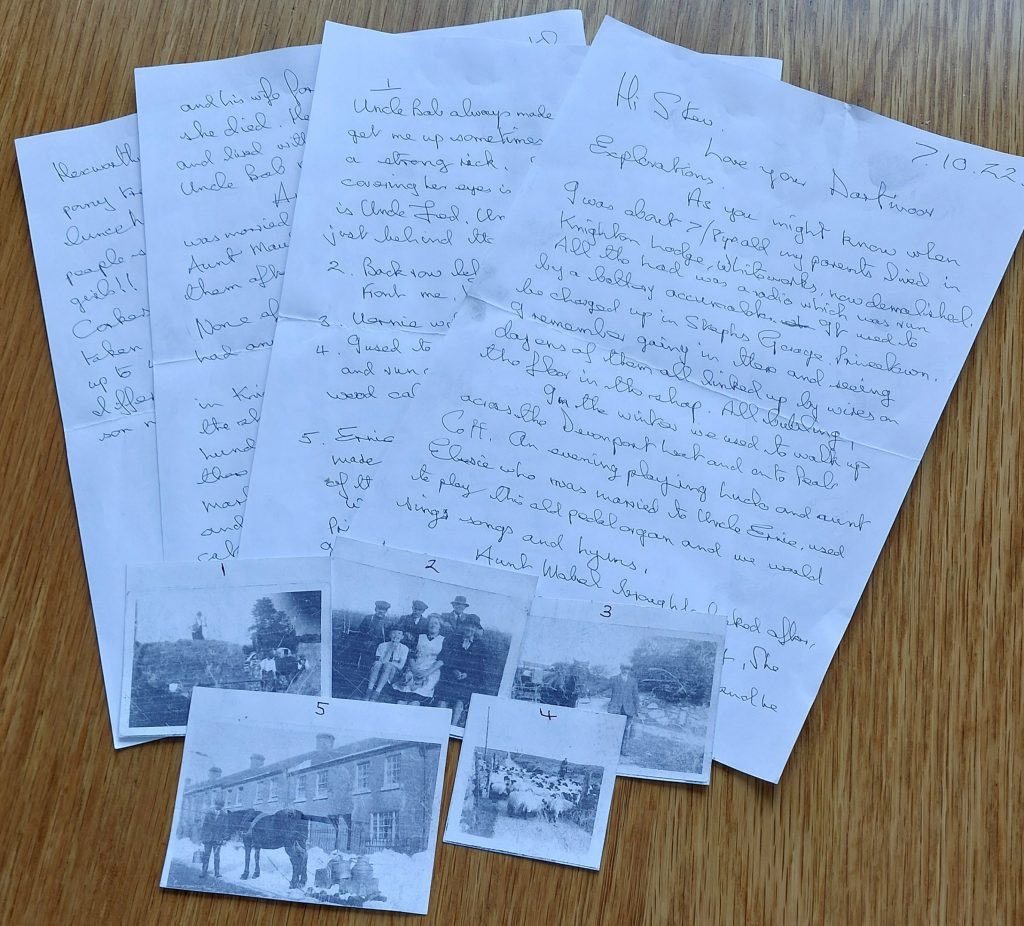 Hi Stew.
7.10.22.
Love your Dartmoor
Explorations.
As you might know when
I was about 7/8yrs old my parents lived in
Knighton Lodge, Whiteworks, now demolished.
All tho had was a radio which was run
by a battery accumulator. It used to
be charged up in Stephs Garage Princetown.
I remember going in there and seeing
dozens of them all linked up by wires on
the floor in the shop. All bubbling
In the winter we used to walk up
across the Devonport Leat and on to Peat
Cott. An evening playing and aunt
Elsie who was married to Uncle Ernie, used
to play the old pedal organ and we would
sing songs and hymns.
Aunt Mabel brought looked after,
She
and he
1
Uncle Bob always made
get me up sometimes
a strong rick.
covering her eyes is
is Uncle Fred. Un
just behind the
2. Back row lef
Font me,
3. Vernie w
4. I used to
and run
wood ca
5. Ernie
made
of th
Pri
and his wife for
she died. He
and lived with
Uncle Bob
A
was married
Aunt Mau
them after
None of
had an
in Kni
the
hund
thos
mar
and
cat
Hexworth
pony tr
lunch
people
girls!!
Cakes
taken
up to
differ
son
1
2
3
4
5